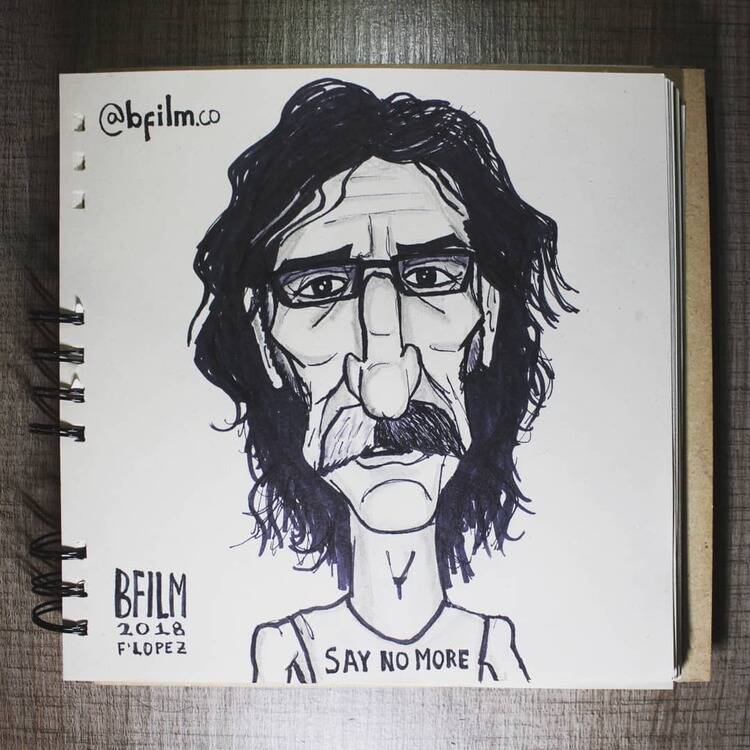 @bfilm.co
BFILM
2018
F'LOPEZ
SAY NO MORE